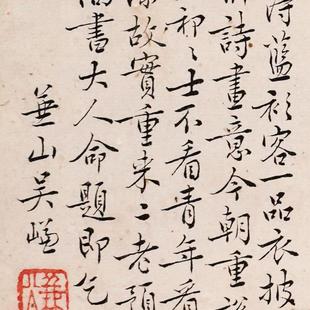 藍衫客一品衣披
詩畫意今朝重
士不看青年看
故實重来二老
尚書大人命題即乞
山吳